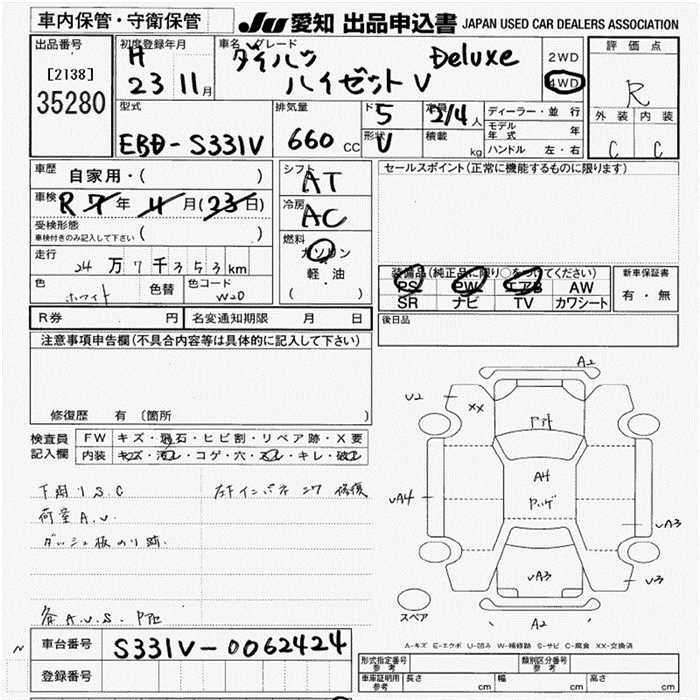 車内保管・守衛保管
JU 愛知 出品申込書 JAPAN USED CAR DEALERS ASSOCIATION
出品番号
[2138]
35280
初度登録年月
H
23 11月
車名 グレード
ダイハツ Deluxe
ハイゼット V
2WD
4WD
評価点
R
外装 内装
C C
型式
EBD-S331V
排気量
660 CC
ド 5
形状 V
定員 2/4 人
積載 kg
ディーラー・並行
モデル年式 年
ハンドル 左・右
車歴
自家用・( )
車検
R 7年 11月(23日)
受検形態
車検付きのみ記入して下さい ( )
走行
24万7千353km
色 ホワイト 色替 色コード W20
シフト
AT
冷房
AC
燃料
ガソリン
・
軽油
( )
セールスポイント(正常に機能するものに限ります)
装備品(純正品に限り○をつけてください)
PS PW エアB AW
SR ナビ TV カワシート
新車保証書
有・無
R券 円 名変通知期限 月 日
後日品
注意事項申告欄(不具合内容等は具体的に記入して下さい)
修復歴 有 (箇所 )
検査員記入欄
FW キズ・飛石・ヒビ割・リペア跡・X要
内装 キズ・汚れ・コゲ・穴・スレ・キレ・破れ
下廻りS.C
荷室A.U.
ダッシュ板のり跡
A2
U2
XX
AH
UA4
UA3
UA3
U3
A2
スペア
A-キズ E-エクボ U-凹み W-補修跡 S-サビ C-腐食 XX-交換済
車台番号 S331V-0062424
登録番号
形式指定番号 参考
類別区分番号 参考
車庫証明用 参考 長さ cm 幅 cm 高さ cm